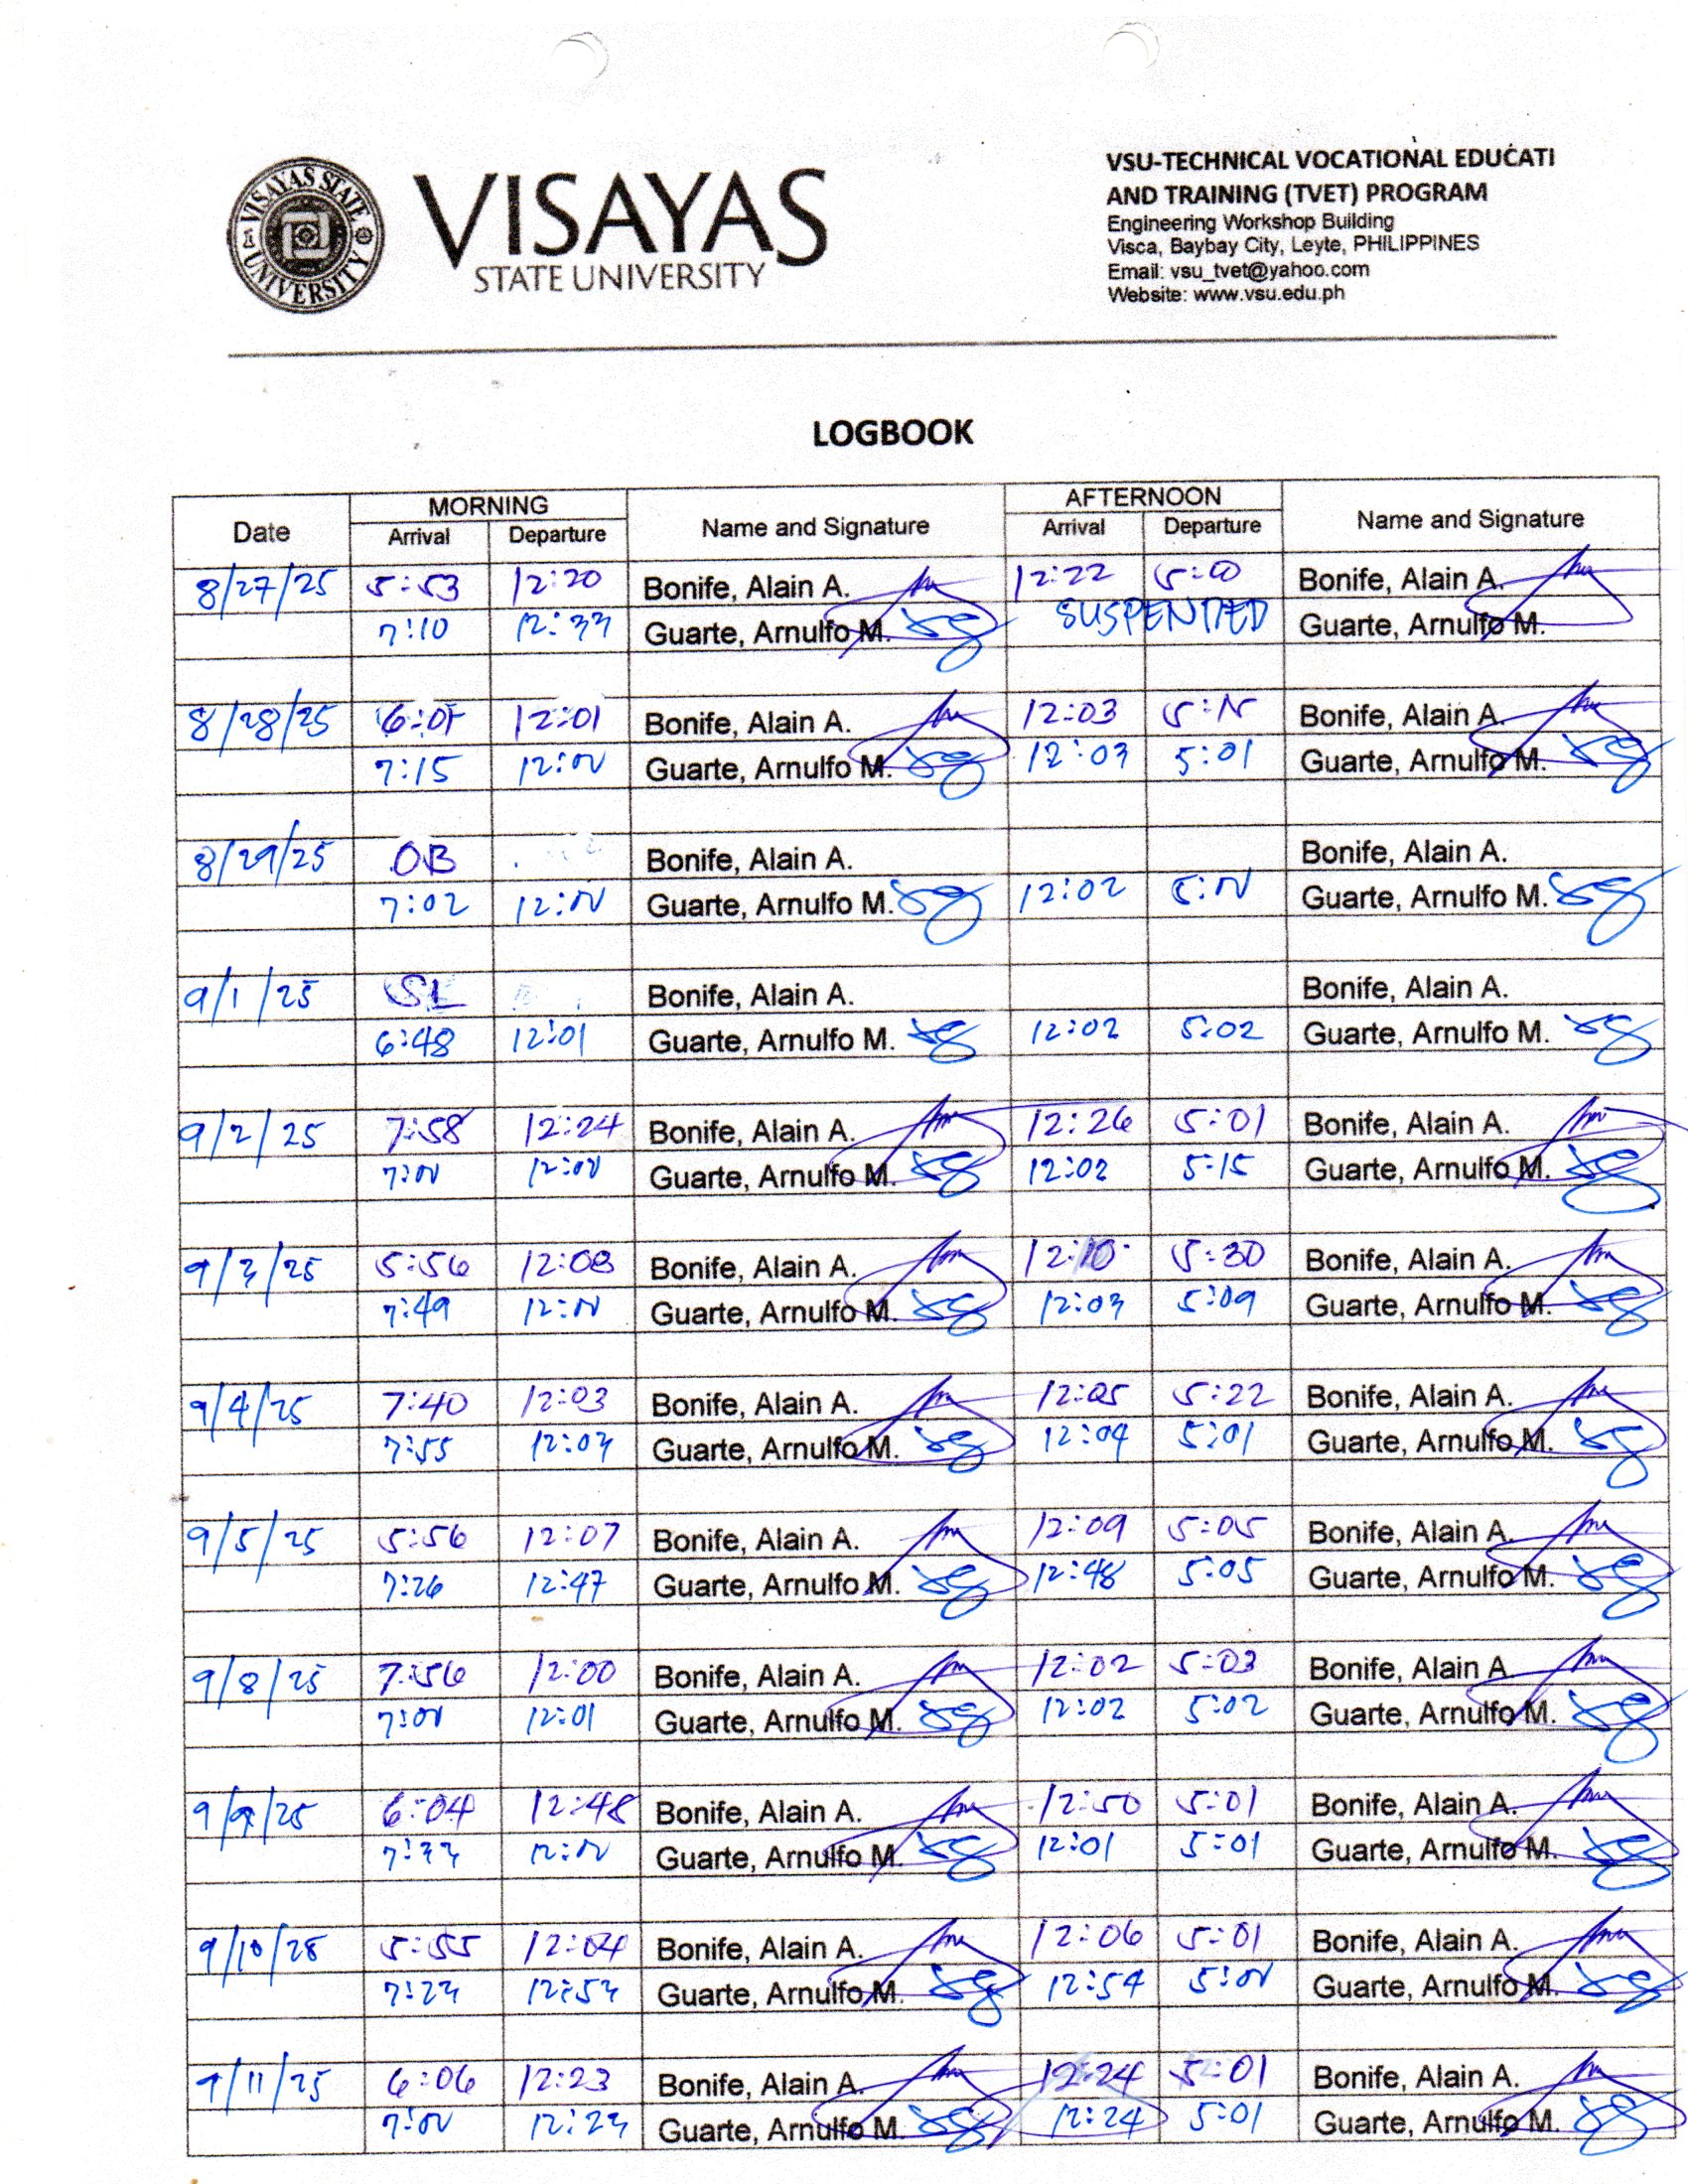 VISAYAS STATE UNIVERSITY
VISAYAS
STATE UNIVERSITY
VSU-TECHNICAL VOCATIONAL EDUCATI
AND TRAINING (TVET) PROGRAM
Engineering Workshop Building
Visca, Baybay City, Leyte, PHILIPPINES
Email: vsu_tvet@yahoo.com
Website: www.vsu.edu.ph
LOGBOOK
Date MORNING Name and Signature AFTERNOON Name and Signature
Arrival Departure Arrival Departure
8/27/25 5:53 12:20 Bonife, Alain A. 12:22 5:00 Bonife, Alain A.
7:10 12:33 Guarte, Arnulfo M. SUSPENDED Guarte, Arnulfo M.
8/28/25 12:01 Bonife, Alain A. 12:03 Bonife, Alain A.
7:15 12:00 Guarte, Arnulfo M. 12:03 5:01 Guarte, Arnulfo M.
8/29/25 OB Bonife, Alain A. Bonife, Alain A.
7:02 12:00 Guarte, Arnulfo M. 12:02 5:00 Guarte, Arnulfo M.
9/1/25 SL Bonife, Alain A. Bonife, Alain A.
6:48 12:01 Guarte, Arnulfo M. 12:02 5:02 Guarte, Arnulfo M.
9/2/25 7:58 12:24 Bonife, Alain A. 12:26 5:01 Bonife, Alain A.
7:00 12:00 Guarte, Arnulfo M. 12:02 5:15 Guarte, Arnulfo M.
9/3/25 5:56 12:08 Bonife, Alain A. 12:10 5:30 Bonife, Alain A.
7:49 12:00 Guarte, Arnulfo M. 12:03 5:09 Guarte, Arnulfo M.
9/4/25 7:40 12:03 Bonife, Alain A. 12:05 5:22 Bonife, Alain A.
7:55 12:03 Guarte, Arnulfo M. 12:04 5:01 Guarte, Arnulfo M.
9/5/25 5:56 12:07 Bonife, Alain A. 12:09 5:05 Bonife, Alain A.
7:26 12:47 Guarte, Arnulfo M. 12:48 5:05 Guarte, Arnulfo M.
9/8/25 7:56 12:00 Bonife, Alain A. 12:02 5:03 Bonife, Alain A.
7:00 12:01 Guarte, Arnulfo M. 12:02 5:02 Guarte, Arnulfo M.
9/9/25 6:04 12:48 Bonife, Alain A. 12:50 5:01 Bonife, Alain A.
7:33 12:00 Guarte, Arnulfo M. 12:01 5:01 Guarte, Arnulfo M.
9/10/25 5:55 12:04 Bonife, Alain A. 12:06 5:01 Bonife, Alain A.
7:23 12:53 Guarte, Arnulfo M. 12:54 5:00 Guarte, Arnulfo M.
9/11/25 6:06 12:23 Bonife, Alain A. 12:24 5:01 Bonife, Alain A.
7:00 12:23 Guarte, Arnulfo M. 12:24 5:01 Guarte, Arnulfo M.